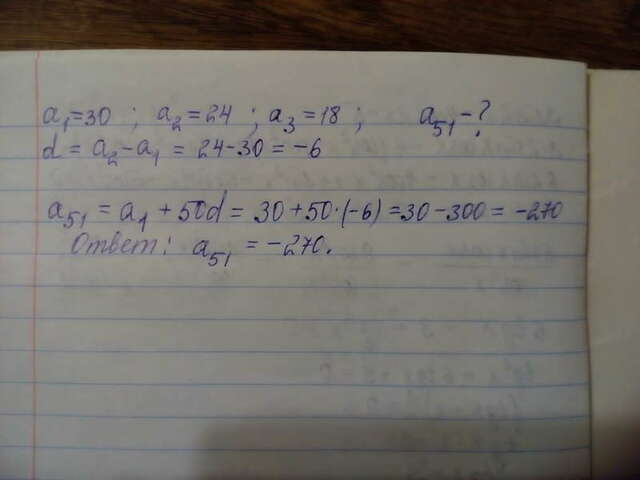 a₁=30 ; a₂=24 ; a₃=18 ; a₅₁-?
d = a₂-a₁ = 24-30 = -6
a₅₁ = a₁ + 50d = 30+50·(-6) =30-300 = -270
Ответ: a₅₁ = -270.